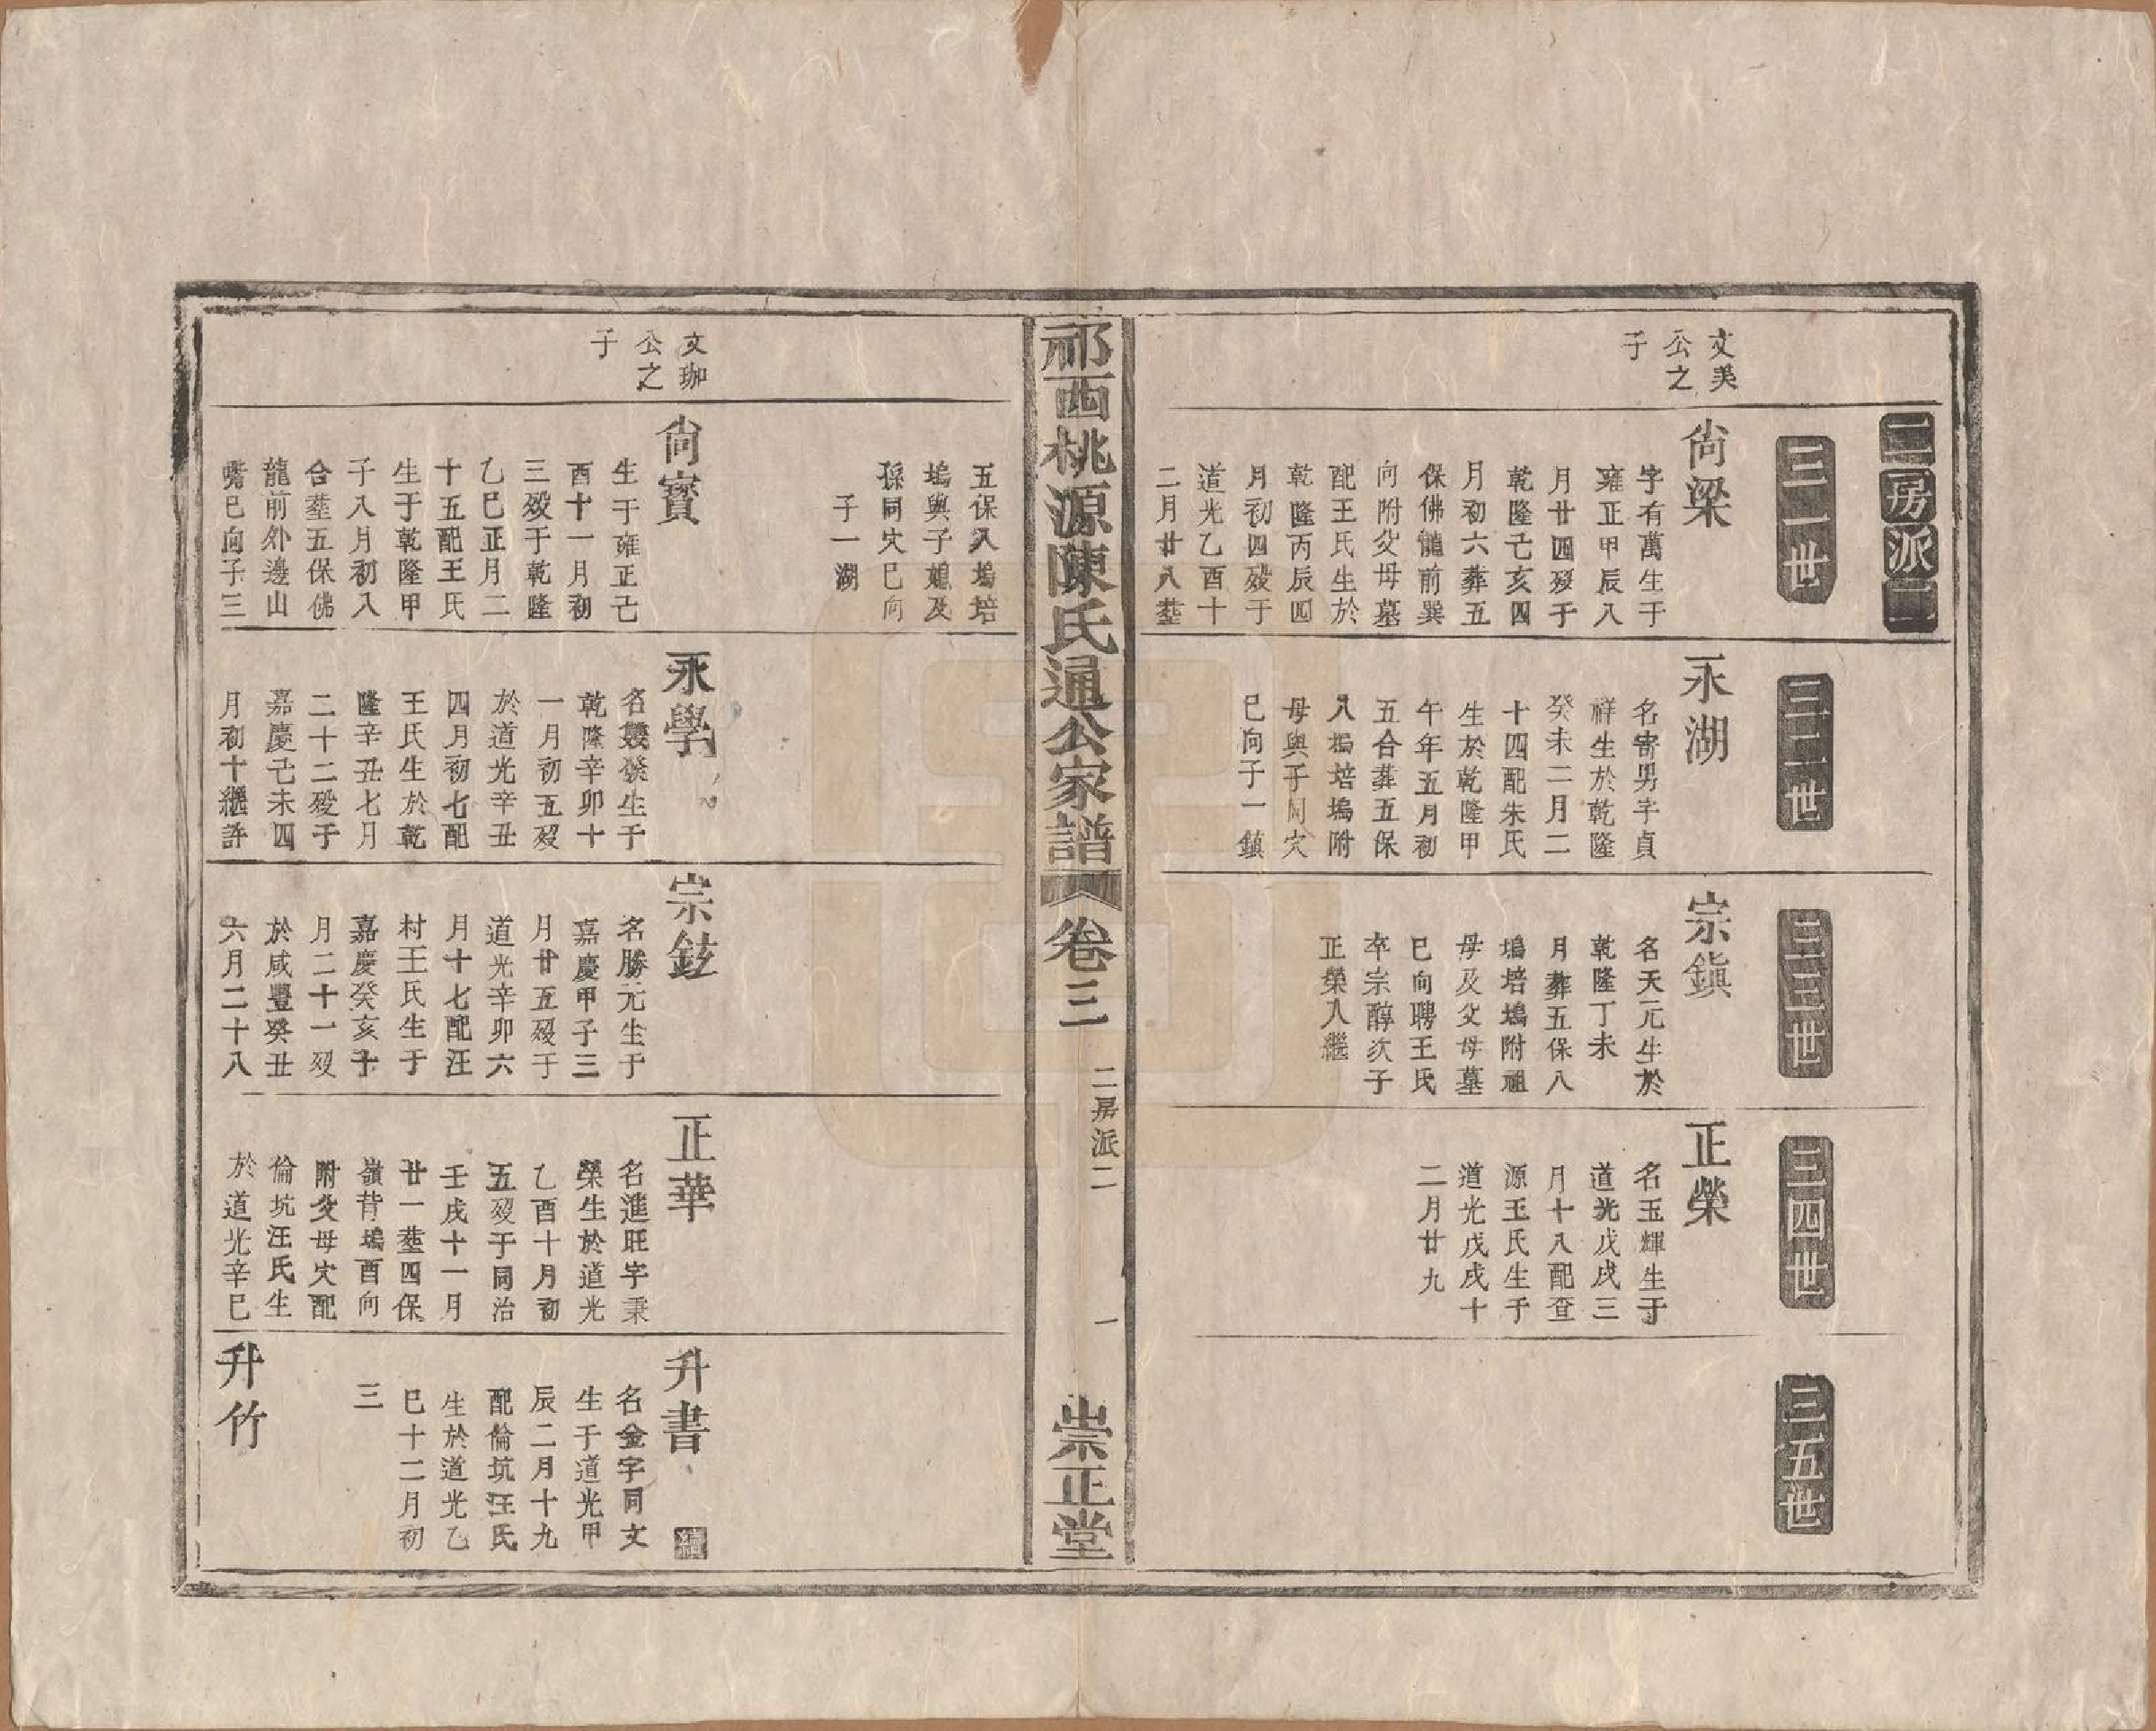 二房派二
三一世
三二世
三三世
三四世
三五世
文美
公之
子
尙梁
字有萬生于
雍正甲辰八
月廿四歿于
乾隆己亥四
月初六葬五
保佛龍前巽
向附父母墓
配王氏生於
乾隆丙辰四
月初四歿于
道光乙酉十
二月廿八塟
永湖
名寄男字貞
祥生於乾隆
癸未二月二
十四配朱氏
生於乾隆甲
午年五月初
五合葬五保
八塢培塢附
母與子同穴
巳向子一鎮
宗鎭
名天元生於
乾隆丁未
月葬五保八
塢培塢附祖
母及父母墓
巳向聘王氏
卒宗醇次子
正榮入繼
正榮
名玉輝生于
道光戊戌三
月十八配查
源王氏生于
道光戊戌十
二月廿九
祁西桃源陳氏通公家譜
卷三
二房派二
一
崇正堂
五保八塢培
塢與子媳及
孫同穴巳向
子一湖
文珈
公之
子
尙寳
生于雍正己
酉十一月初
三歿于乾隆
乙巳正月二
十五配王氏
生于乾隆甲
子八月初八
合塟五保佛
龍前外邊山
嘴巳向子三
永學
名雙發生于
乾隆辛卯十
一月初五歿
於道光辛丑
四月初七配
王氏生於乾
隆辛丑七月
二十二歿于
嘉慶己未四
月初十繼許
宗鉉
名勝元生于
嘉慶甲子三
月廿五歿于
道光辛卯六
月十七配汪
村王氏生于
嘉慶癸亥十
月二十一歿
於咸豐癸丑
六月二十八
正華
名進旺字秉
榮生於道光
乙酉十月初
五歿于同治
壬戌十一月
廿一塟四保
嶺背塢酉向
附父母穴配
倫坑汪氏生
於道光辛巳
升書
名金字同文
生于道光甲
辰二月十九
配倫坑汪氏
生於道光乙
巳十二月初
三
升竹